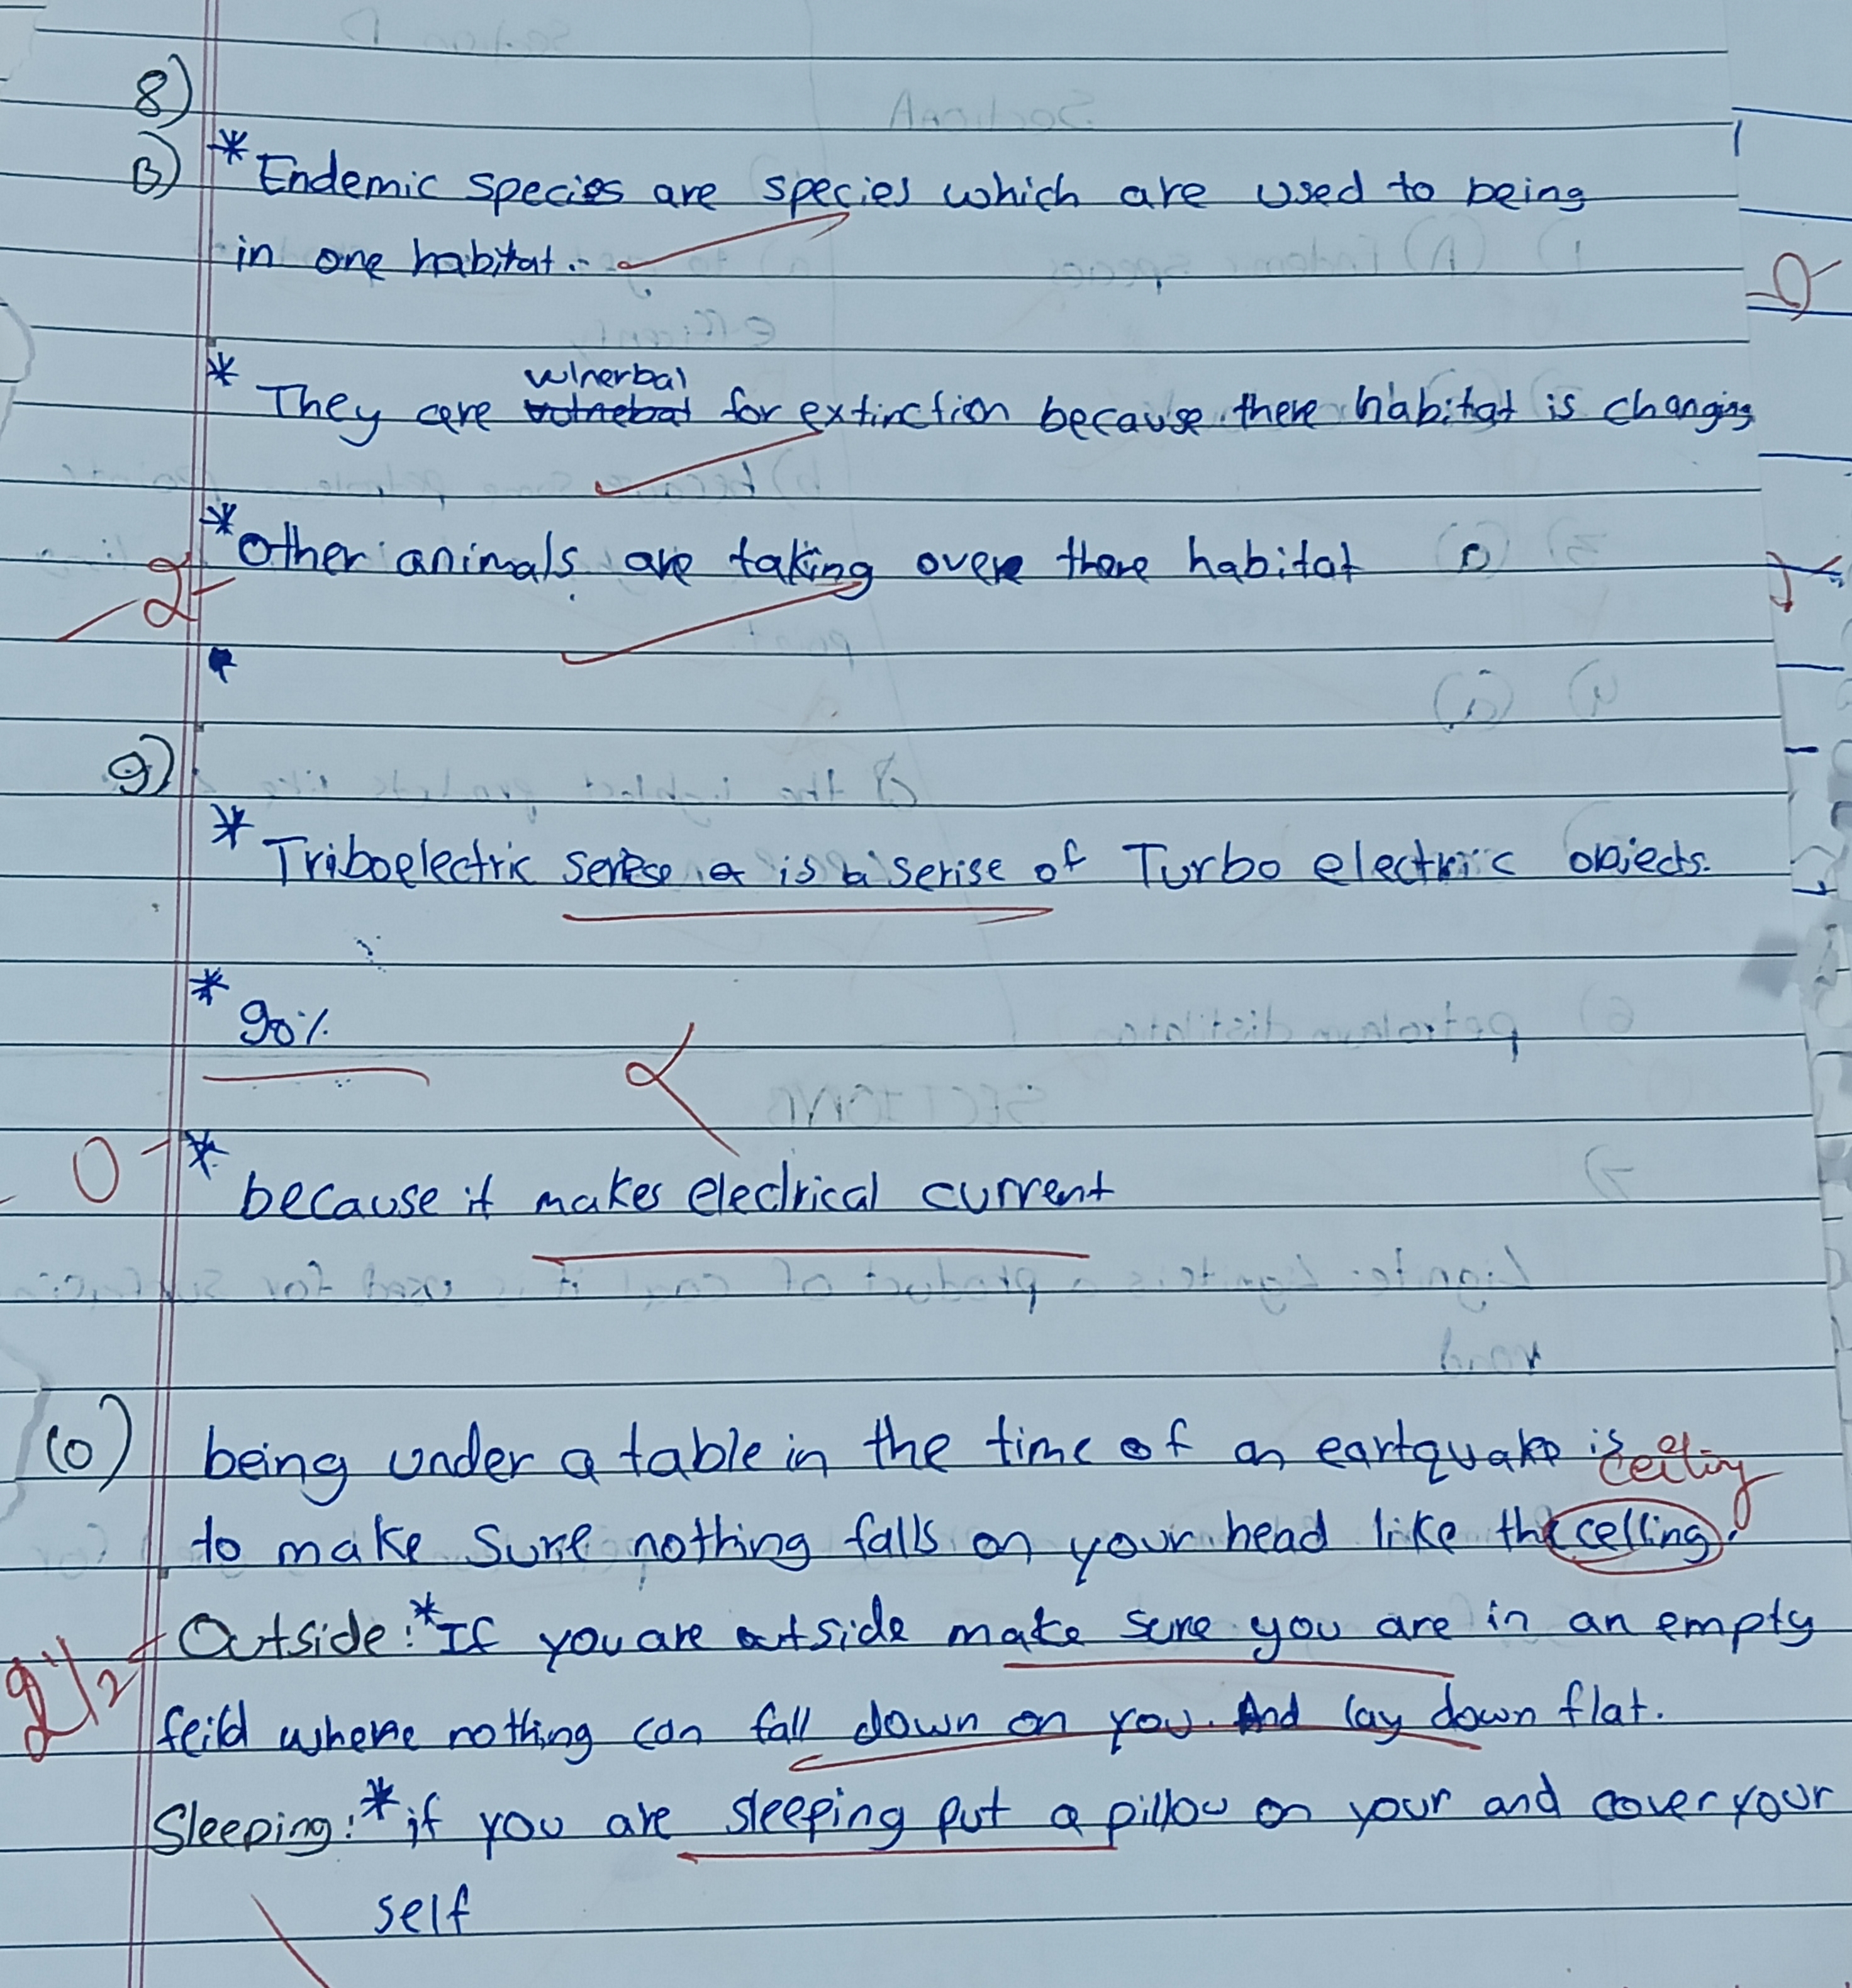 8)
B) * Endemic species are species which are used to being
in one habitat.
vulnerbal
* They are for extinction because there habitat is changing
* Other animals are taking over there habitat
2
9)
* Triboelectric serise is a serise of Turbo electric objects.
* 90%
0 * because it makes electrical current
10) being under a table in the time of an eartquake is
ceiling
to make sure nothing falls on your head like the celling.
Outside: * If you are outside make sure you are in an empty
2 1/2
feild where nothing can fall down on you. And lay down flat.
Sleeping: * if you are sleeping put a pillow on your and cover your
self